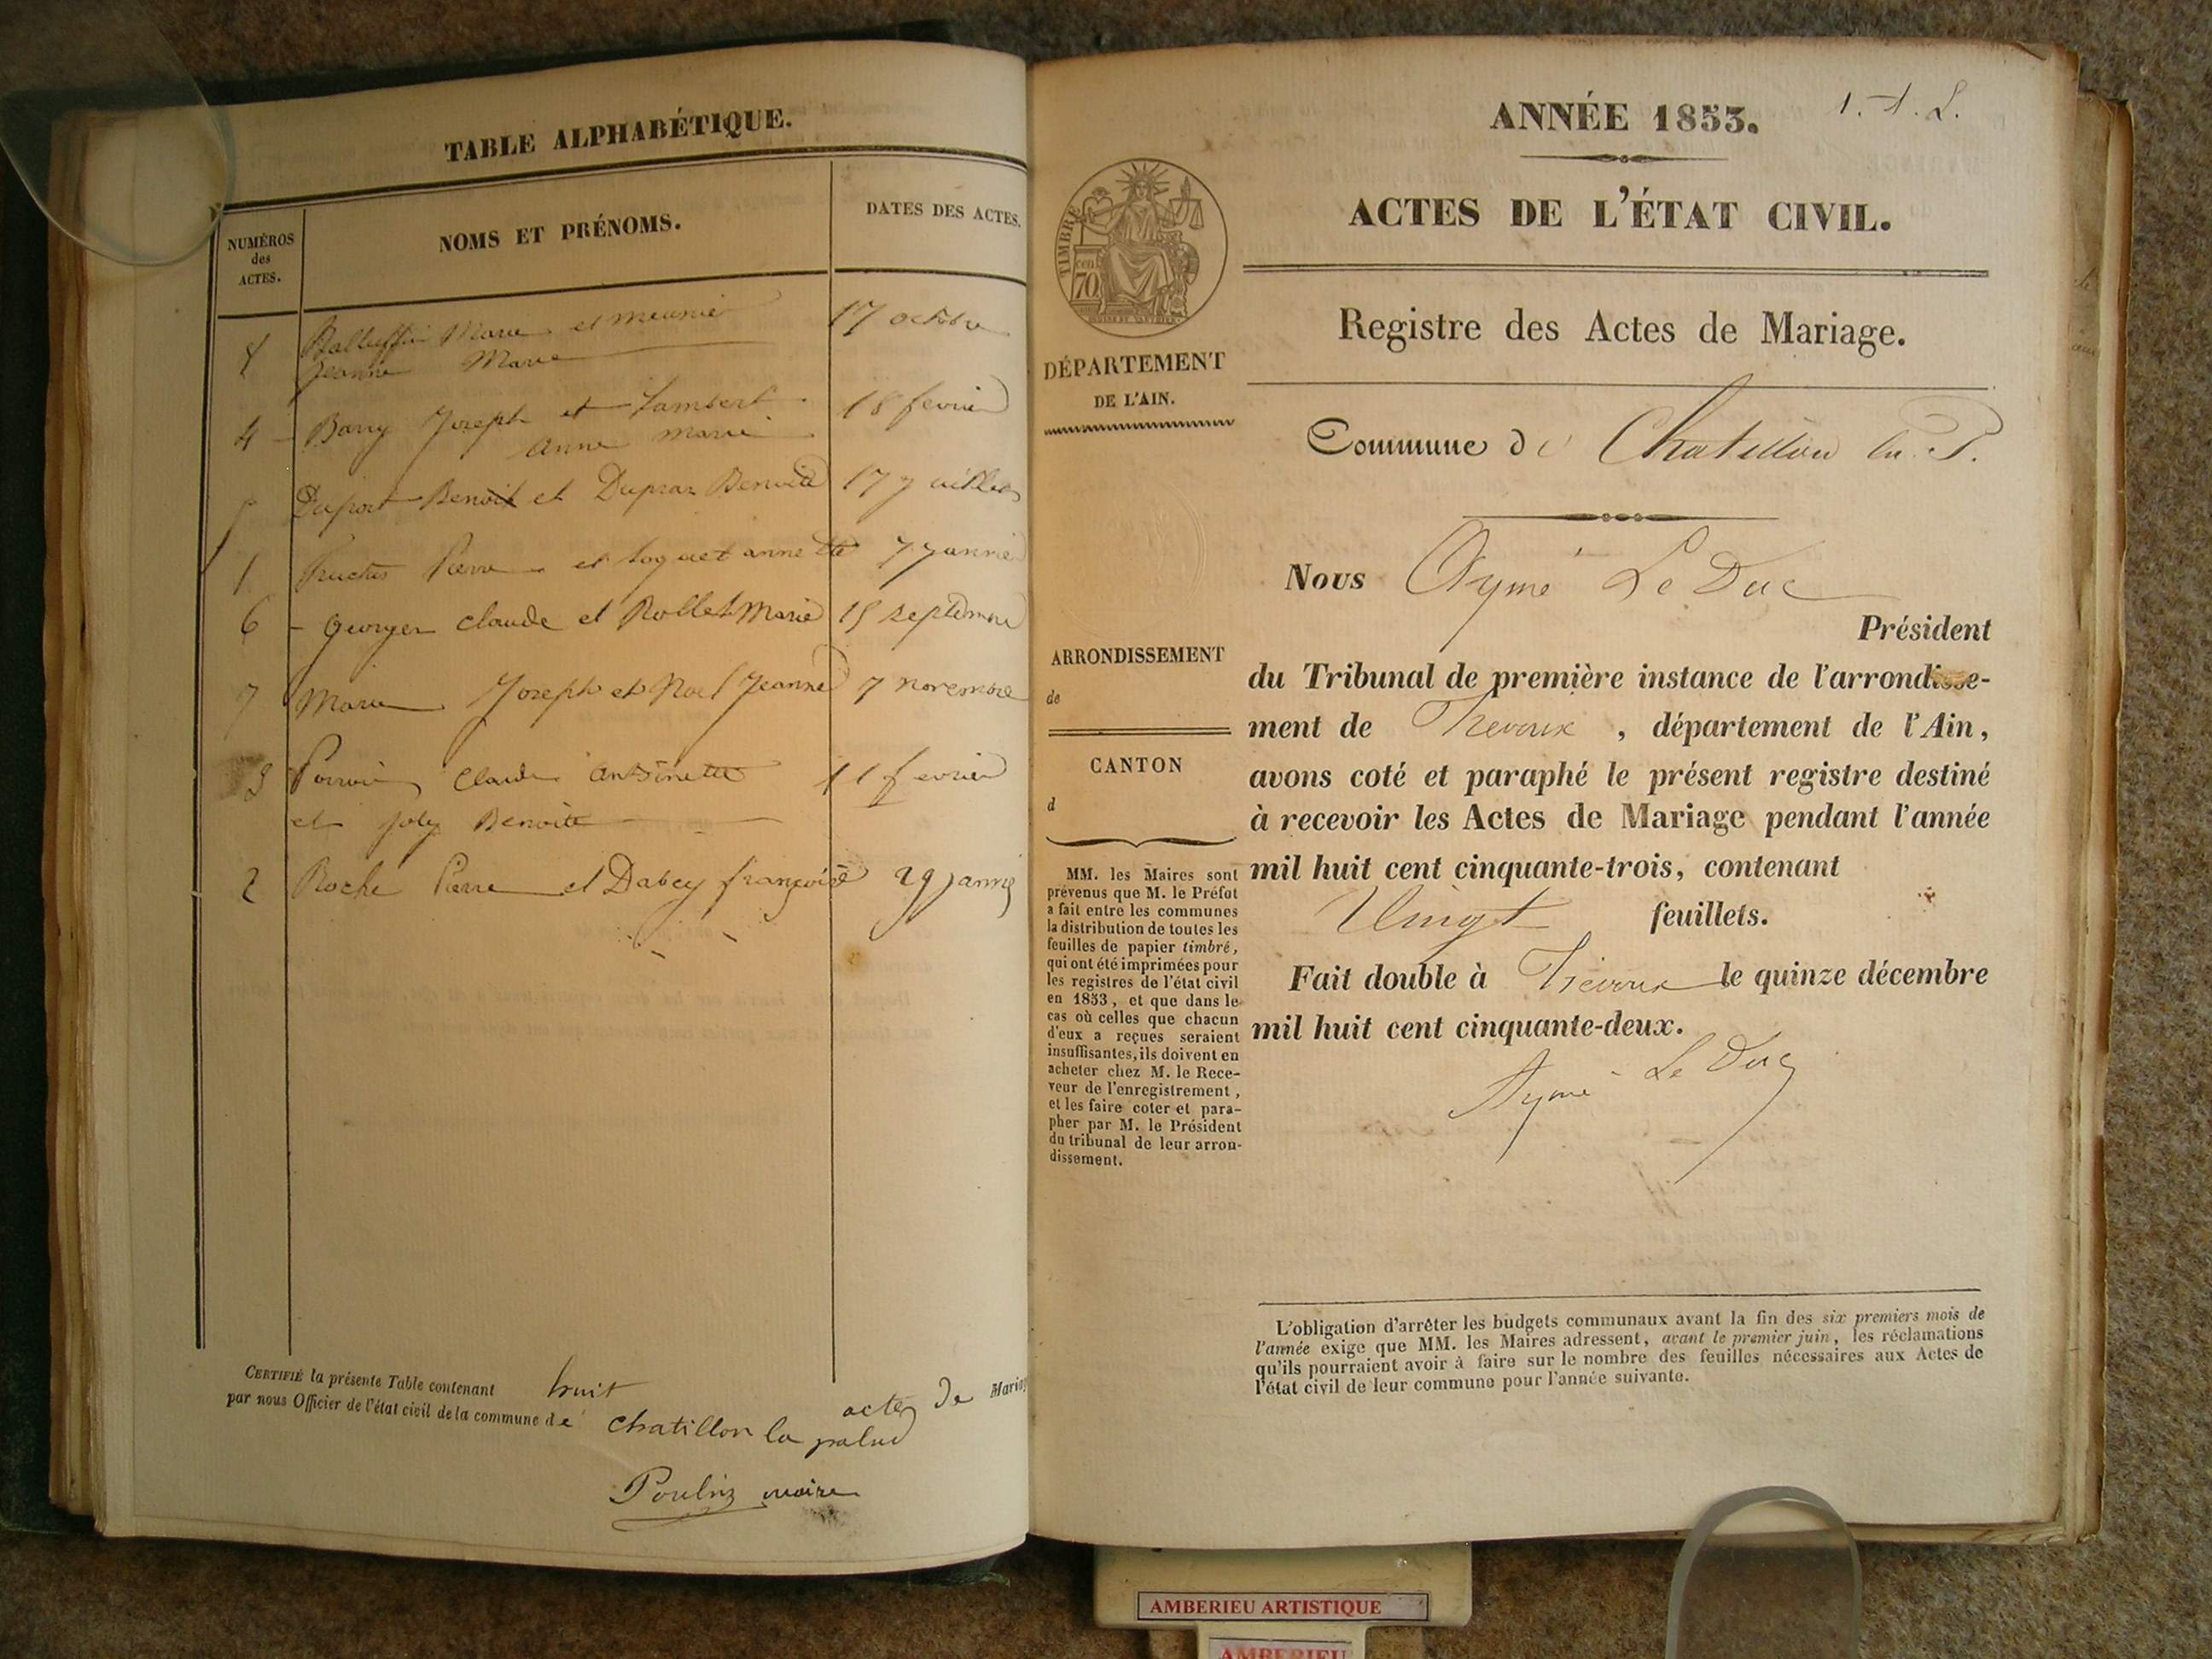 TABLE ALPHABÉTIQUE.
NUMÉROS
des
ACTES.
NOMS ET PRÉNOMS.
DATES DES ACTES.
Marie et meunier 17 octobre
Jeanne Marie
4 Barry Joseph et Lambert 18 fevrier
Anne Marie
Duport Benoit et Dupraz Benoite 17 juillet
1 Pierre et Loquet annette 7 janvier
6 Georger Claude et Rollet Marie 15 septembre
7 Joseph et Noel Jeanne 7 novembre
3 Claude Antoinette 11 fevrier
et Joly Benoite
2 Roche Pierre et Dabey françoise 29 janvier
CERTIFIÉ la présente Table contenant huit actes de Mariage
par nous Officier de l'état civil de la commune de Chatillon la palud
maire
ANNÉE 1853.
ACTES DE L'ÉTAT CIVIL.
TIMBRE
cent
70
Registre des Actes de Mariage.
DÉPARTEMENT
DE L'AIN.
Commune de Chatillon la P.
Nous Aymé Le Duc
Président
ARRONDISSEMENT
de
CANTON
d
du Tribunal de première instance de l'arrondisse-
ment de Trevoux , département de l'Ain,
avons coté et paraphé le présent registre destiné
à recevoir les Actes de Mariage pendant l'année
mil huit cent cinquante-trois, contenant
Vingt feuillets.
Fait double à Trévoux le quinze décembre
mil huit cent cinquante-deux.
Aymé Le Duc
MM. les Maires sont
prévenus que M. le Préfet
a fait entre les communes
la distribution de toutes les
feuilles de papier timbré,
qui ont été imprimées pour
les registres de l'état civil
en 1853, et que dans le
cas où celles que chacun
d'eux a reçues seraient
insuffisantes, ils doivent en
acheter chez M. le Rece-
veur de l'enregistrement,
et les faire coter et para-
pher par M. le Président
du tribunal de leur arron-
dissement.
L'obligation d'arrêter les budgets communaux avant la fin des six premiers mois de
l'année exige que MM. les Maires adressent, avant le premier juin, les réclamations
qu'ils pourraient avoir à faire sur le nombre des feuilles nécessaires aux Actes de
l'état civil de leur commune pour l'année suivante.
AMBERIEU ARTISTIQUE
AMBERIEU